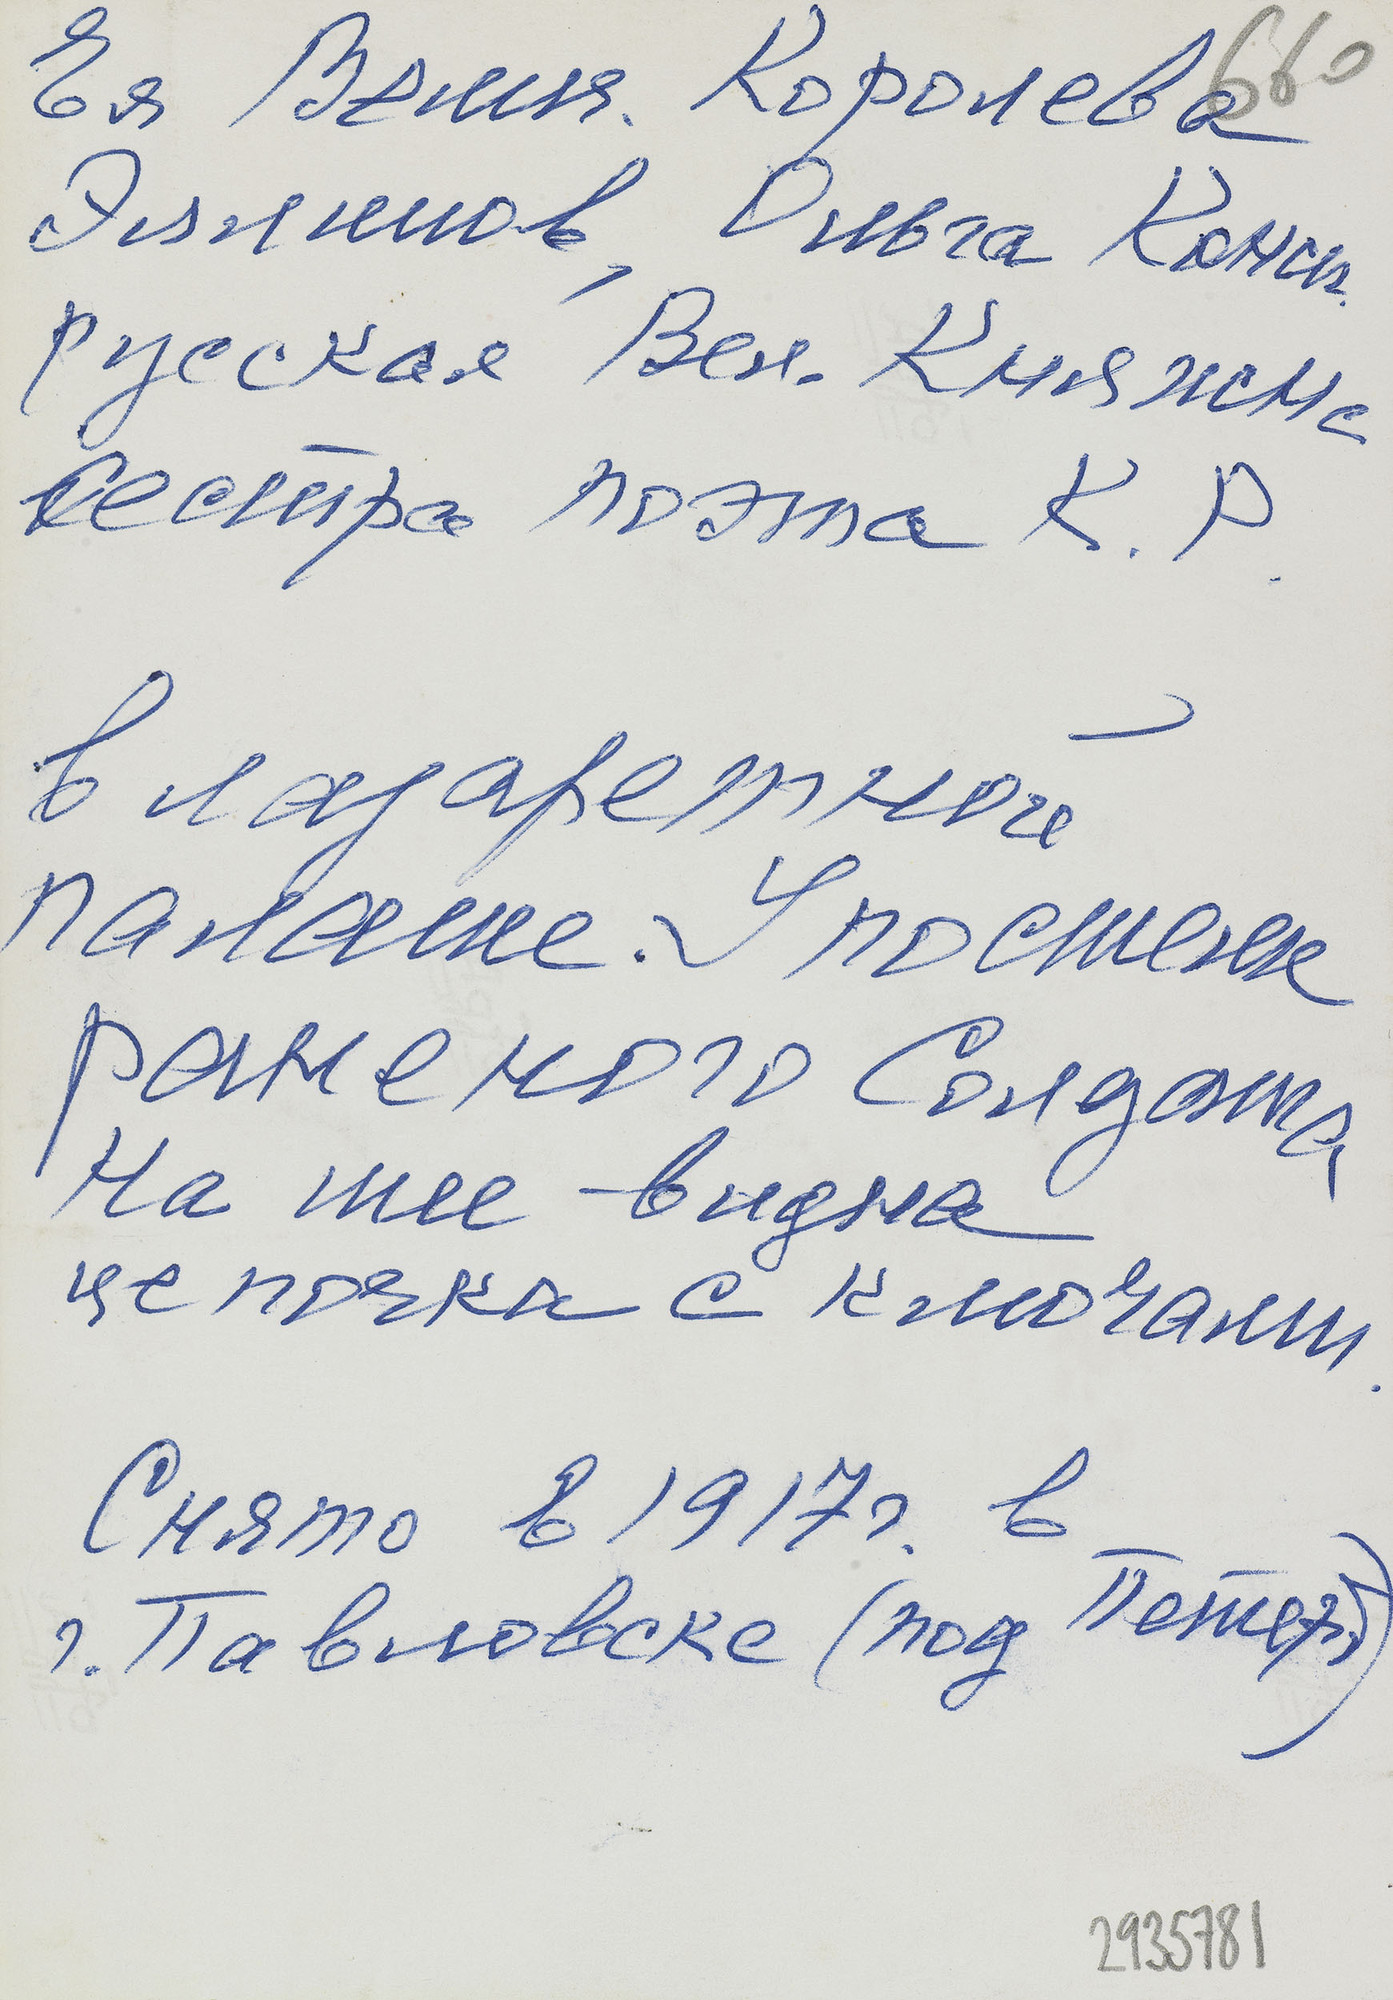 660
Ея Велич. Королева
Эллинов, Ольга Конст.
русская Вел. Княжна
Сестра поэта К. Р.
в лазаретной
палате. У постели
раненого Солдата,
На шее видна
цепочка с ключами.
Снято в 1917 г. в
г. Павловске (под Петерб)
2935781